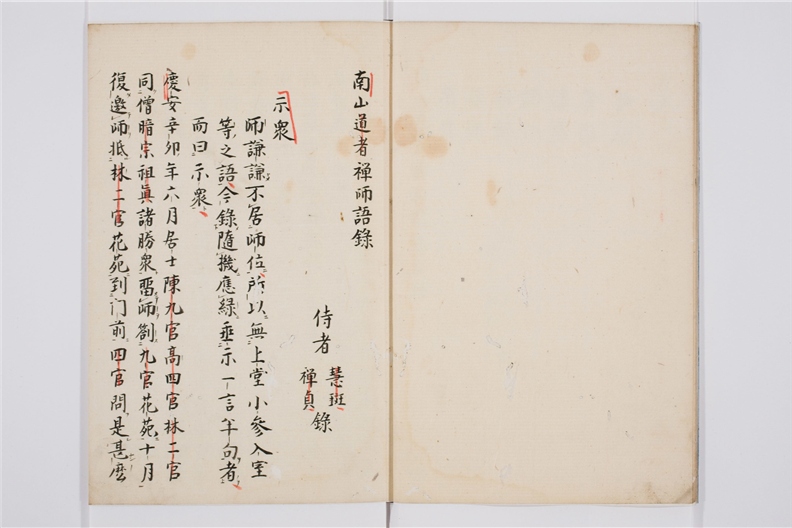 南山道者禅師語錄
侍者
慧斑
禅貞
錄
示衆
師謙謙不居師位所以無上堂小參入室
等之語今錄隨機應緣垂示一言半句者
而曰示衆
慶安辛卯年六月居士陳九官高四官林二官
同僧暗宗祖眞諸勝衆畱師劄九官花苑十月
復邀師抵林二官花苑到门前四官問是甚麽